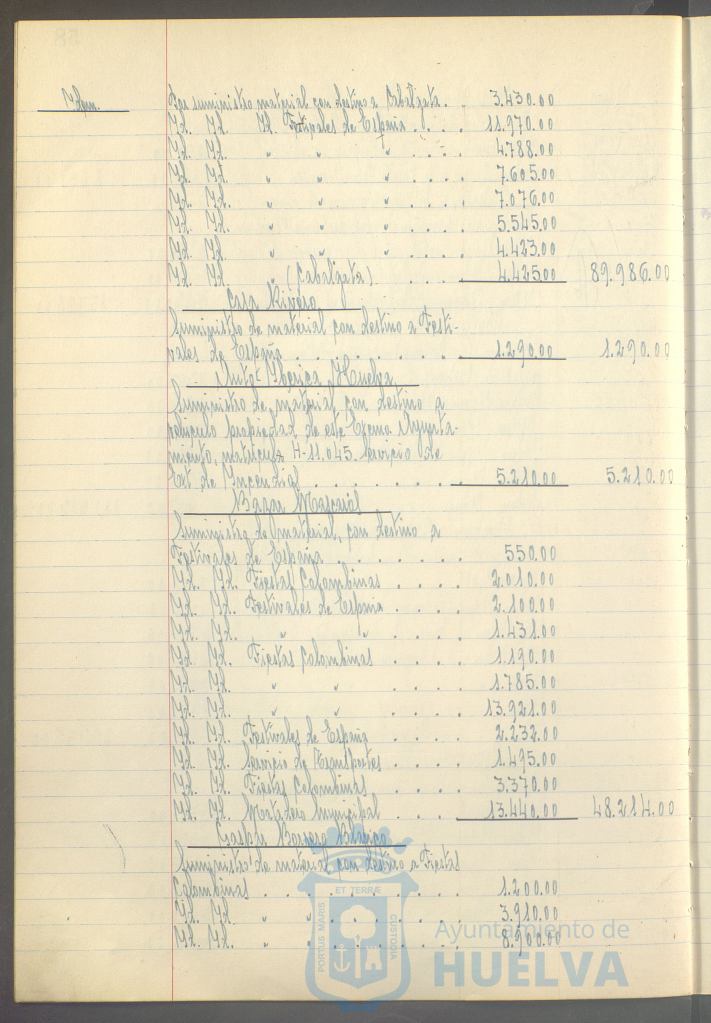 58
Idem.
Por suministro material con destino a Cabalgata. . 3.430.00
Id. Id. Id. Festivales de España . . . . 11.970.00
Id. Id. " " " . . . . 4.788.00
Id. Id. " " " . . . . 7.605.00
Id. Id. " " " . . . . 7.076.00
Id. Id. " " " . . . . 5.545.00
Id. Id. " " " . . . . 4.423.00
Id. Id. " (Cabalgata) . . . . 4.425.00 89.986.00
Casa Rivero
Suministro de material con destino a Festi-
vales de España . . . . . . . . 1.290.00 1.290.00
Auto Iberica Huelva
Suministro de material con destino a
vehículo propiedad de este Excmo Ayunta-
miento, matrícula H-11.045. Servicio de
Ext. de Incendios . . . . . . . . 5.210.00 5.210.00
Bazar Mascarós
Suministro de material, con destino a
Festivales de España . . . . . . . 550.00
Id. Id. Fiestas Colombinas . . . . 2.010.00
Id. Id. Festivales de España . . . . 2.100.00
Id. Id. " " . . . . 1.431.00
Id. Id. Fiestas Colombinas . . . . 1.190.00
Id. Id. " " . . . . 1.785.00
Id. Id. " " . . . . 13.921.00
Id. Id. Festivales de España . . . . 2.232.00
Id. Id. Servicio de Transportes . . . . 1.495.00
Id. Id. Fiestas Colombinas . . . . 3.370.00
Id. Id. Matadero Municipal . . . . 13.440.00 48.214.00
Borrero
Suministro de material con destino a Fiestas
Colombinas . . . . . . . . 1.200.00
Id. Id. " " . . . . 3.910.00
Id. Id. " " . . . . 8.900.00
ET TERRÆ
PORTUS MARIS
CUSTODIA
Ayuntamiento de
HUELVA